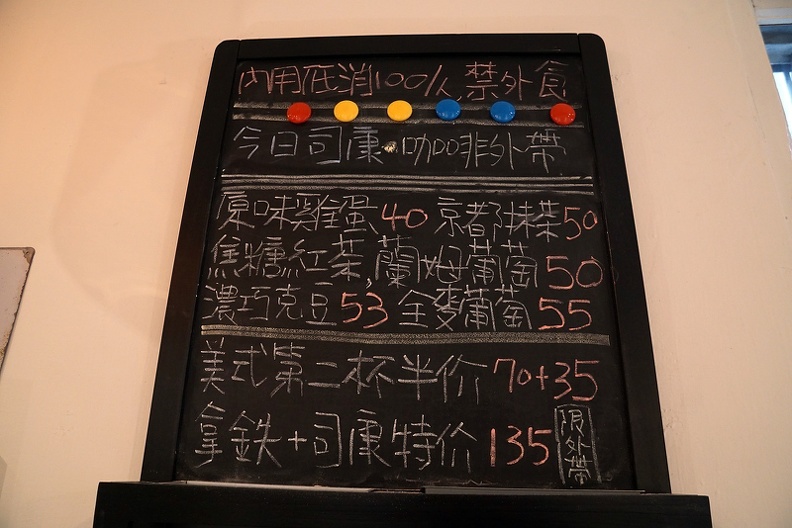 內用低消100/人,禁外食
今日司康·咖啡外帶
原味雞蛋40 京都抹茶50
焦糖紅茶,蘭姆葡萄50
濃巧克豆53 全麥葡萄55
美式第二杯半价 70+35
拿鉄+司康特价135 限外帶